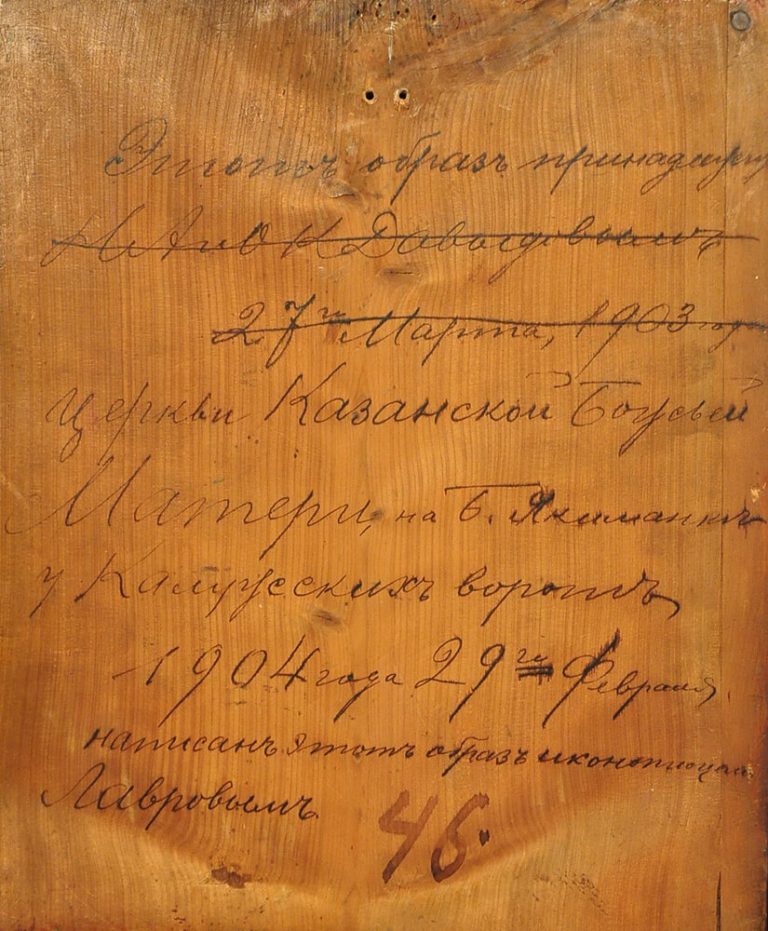 Этотъ образъ принадлежитъ
Н А и О К Давыдовымъ
27го Марта, 1903 года
Церкви Казанской Божьей
Матери, на Б. Якиманкѣ
у Калужскихъ воротъ,
1904 года 29го Февраля,
написанъ этотъ образъ иконописцемъ
Лавровымъ.
46.